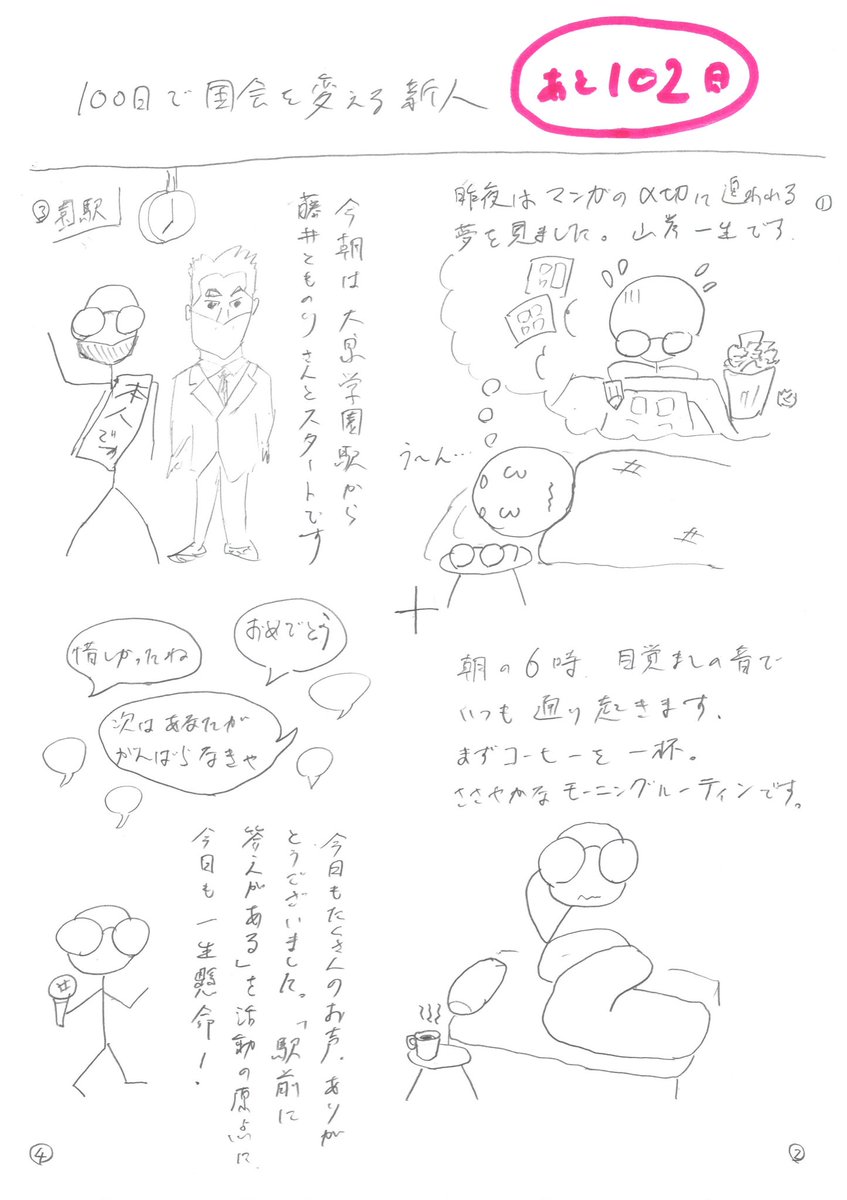 100日で国会を変える新人
あと102日
①
昨夜はマンガの〆切に追われる
夢を見ました。山岸一生です.
う〜ん…
朝の6時.目覚ましの音で
いつも通り起きます.
まずコーヒーを一杯。
ささやかなモーニングルーティンです。
②
③
園駅
今朝は大泉学園駅から
藤井とものりさんとスタートです
本人です
おめでとう
惜しかったね
次はあなたが
がんばらなきゃ
今日もたくさんのお声.ありが
とうございました。「駅前に
答えがある」を活動の原点に.
今日も一生懸命!
④